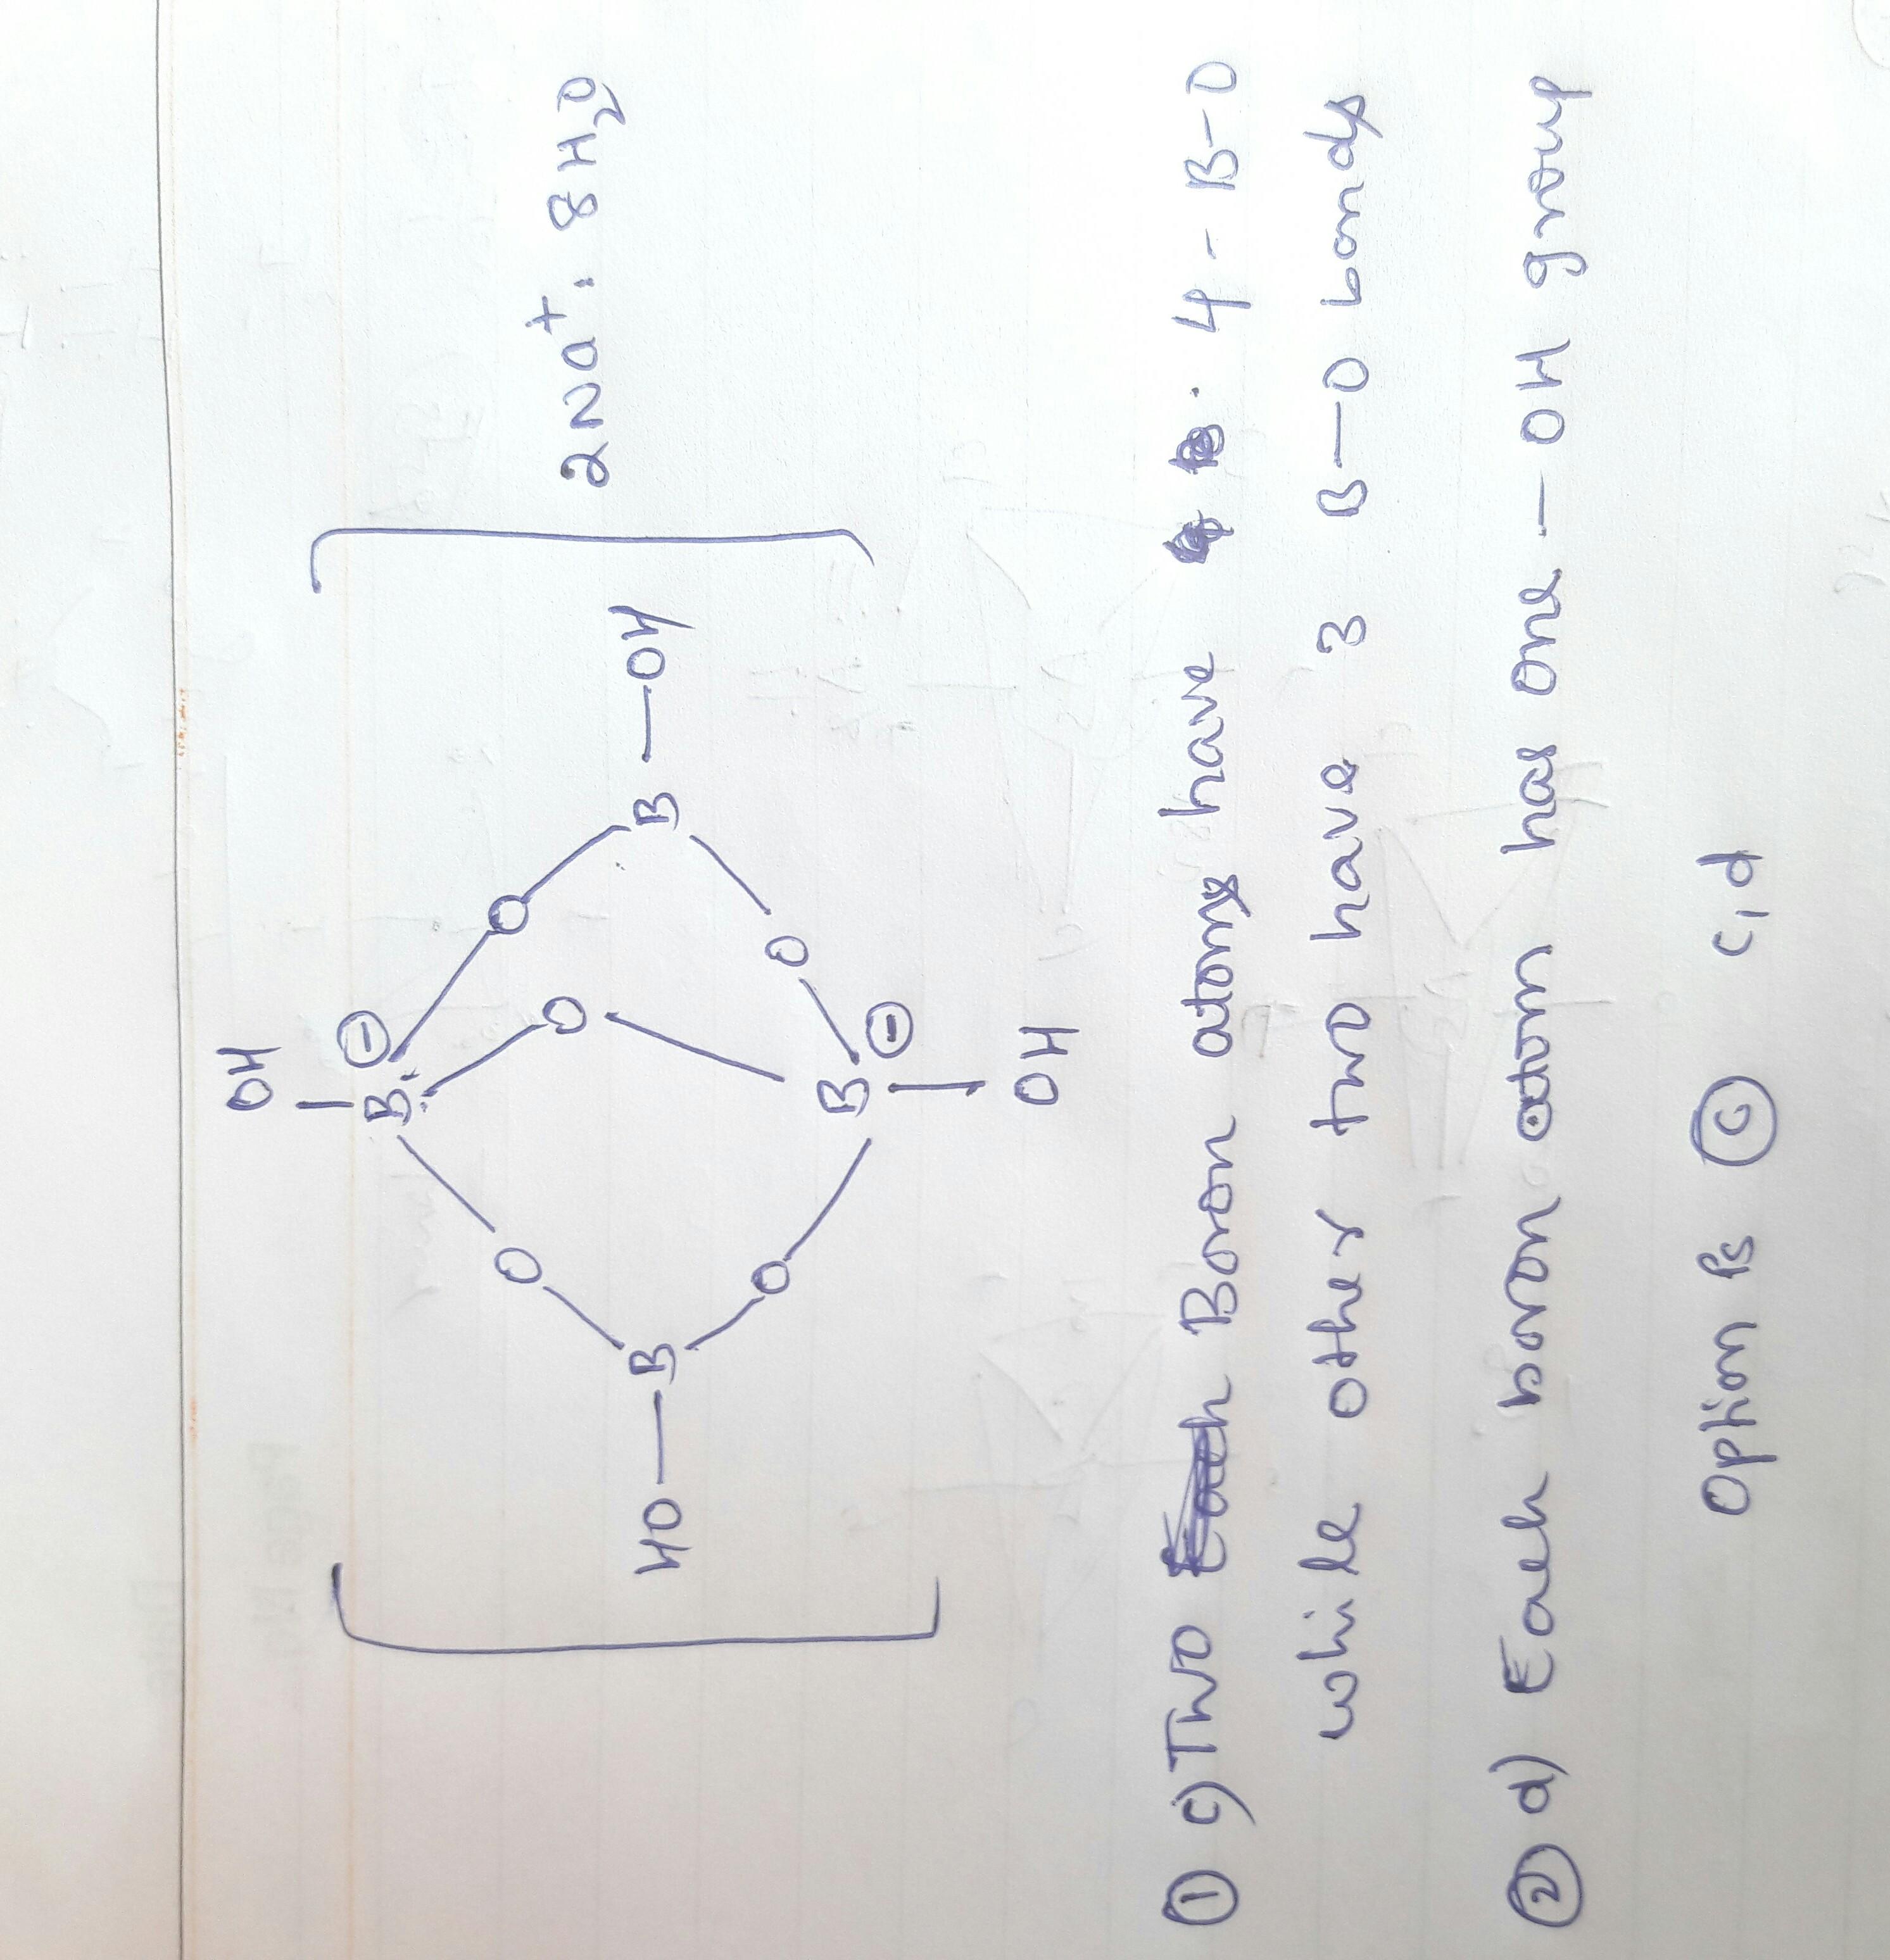 OH
B ⊖
O O
O
HO—B B—OH
O O
B ⊖
OH
2Na+. 8H2O
① c) Two Boron atoms have 4 - B-O
while other two have 3 B—O bonds
② d) Each boron atom has one —OH group
Option is Ⓒ c, d